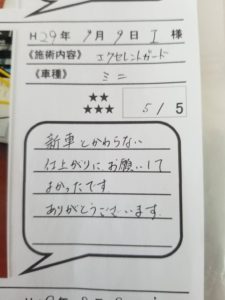 H29年 9月9日 I 様
《施術内容》エクセレントガード
《車種》ミニ
★★
★★★ 5/5
新車とかわらない
仕上がりにお願いして
よかったです
ありがとうございます